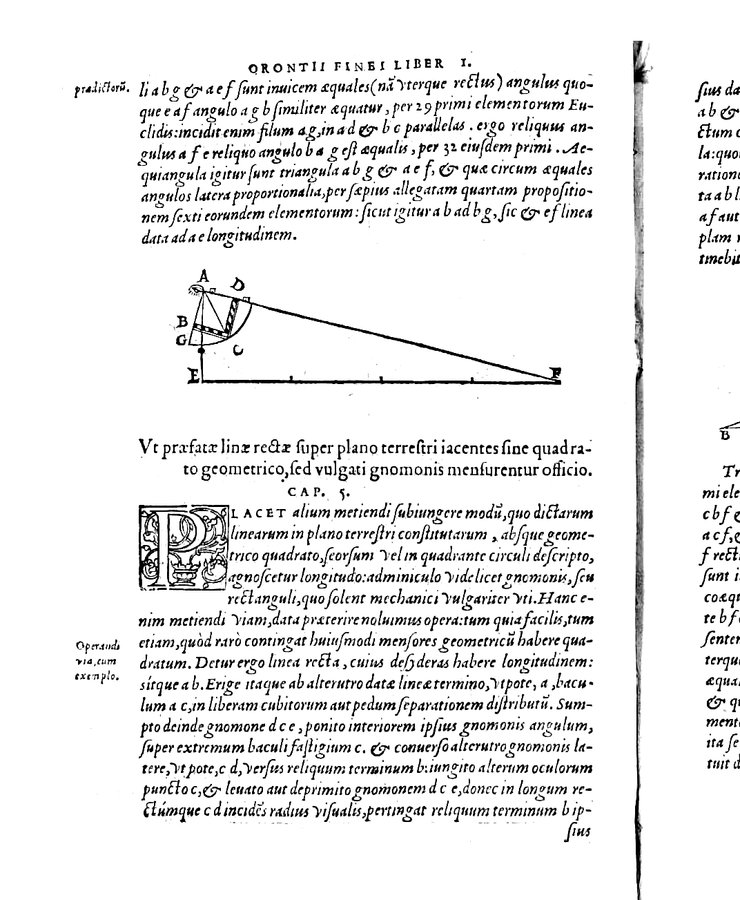 ORONTII FINEI LIBER I.
prædictorū.
li a b g & a e f sunt inuicem æquales (nā vterque rectus) angulus quo-
que e a f angulo a g b similiter æquatur, per 29 primi elementorum Eu-
clidis: incidit enim filum a g, in a d & b c parallelas. ergo reliquus an-
gulus a f e reliquo angulo b a g est æqualis, per 32 eiusdem primi. Ae-
quiangula igitur sunt triangula a b g & a e f, & quæ circum æquales
angulos latera proportionalia, per sæpius allegatam quartam propositio-
nem sexti eorundem elementorum: sicut igitur a b ad b g, sic & e f linea
data ad a e longitudinem.
A
D
B
G
C
E
F
Vt præfatæ linæ rectæ super plano terrestri iacentes sine quadra-
to geometrico, sed vulgati gnomonis mensurentur officio.
CAP. 5.
PLACET alium metiendi subiungere modū, quo dictarum
linearum in plano terrestri constitutarum, absque geome-
trico quadrato, seorsum vel in quadrante circuli descripto,
agnoscetur longitudo: adminiculo videlicet gnomonis, seu
rectanguli, quo solent mechanici vulgariter vti. Hanc e-
nim metiendi viam, data præterire noluimus opera: tum quia facilis, tum
etiam, quòd rarò contingat huiusmodi mensores geometricū habere qua-
dratum. Detur ergo linea recta, cuius desyderas habere longitudinem:
sitque a b. Erige itaque ab alterutro datæ lineæ termino, vtpote, a, bacu-
lum a c, in liberam cubitorum aut pedum separationem distributū. Sum-
pto deinde gnomone d c e, ponito interiorem ipsius gnomonis angulum,
super extremum baculi fastigium c. & conuerso alterutro gnomonis la-
tere, vt pote, c d, versus reliquum terminum b: iungito alterum oculorum
puncto c, & leuato aut deprimito gnomonem d c e, donec in longum re-
ctúmque c d incidēs radius visualis, pertingat reliquum terminum b ip-
sius
Operandi
via, cum
exemplo.
sius da
a b &
ctum c
la: quo
ratione
ta a b l
a f aut
plam r
tinebit
B
Tr
mi ele
c b f &
a c f, &
f recti
sunt i
coæq
te b f c
senten
terqu
æqua
& qu
ment
ita se
tuit d